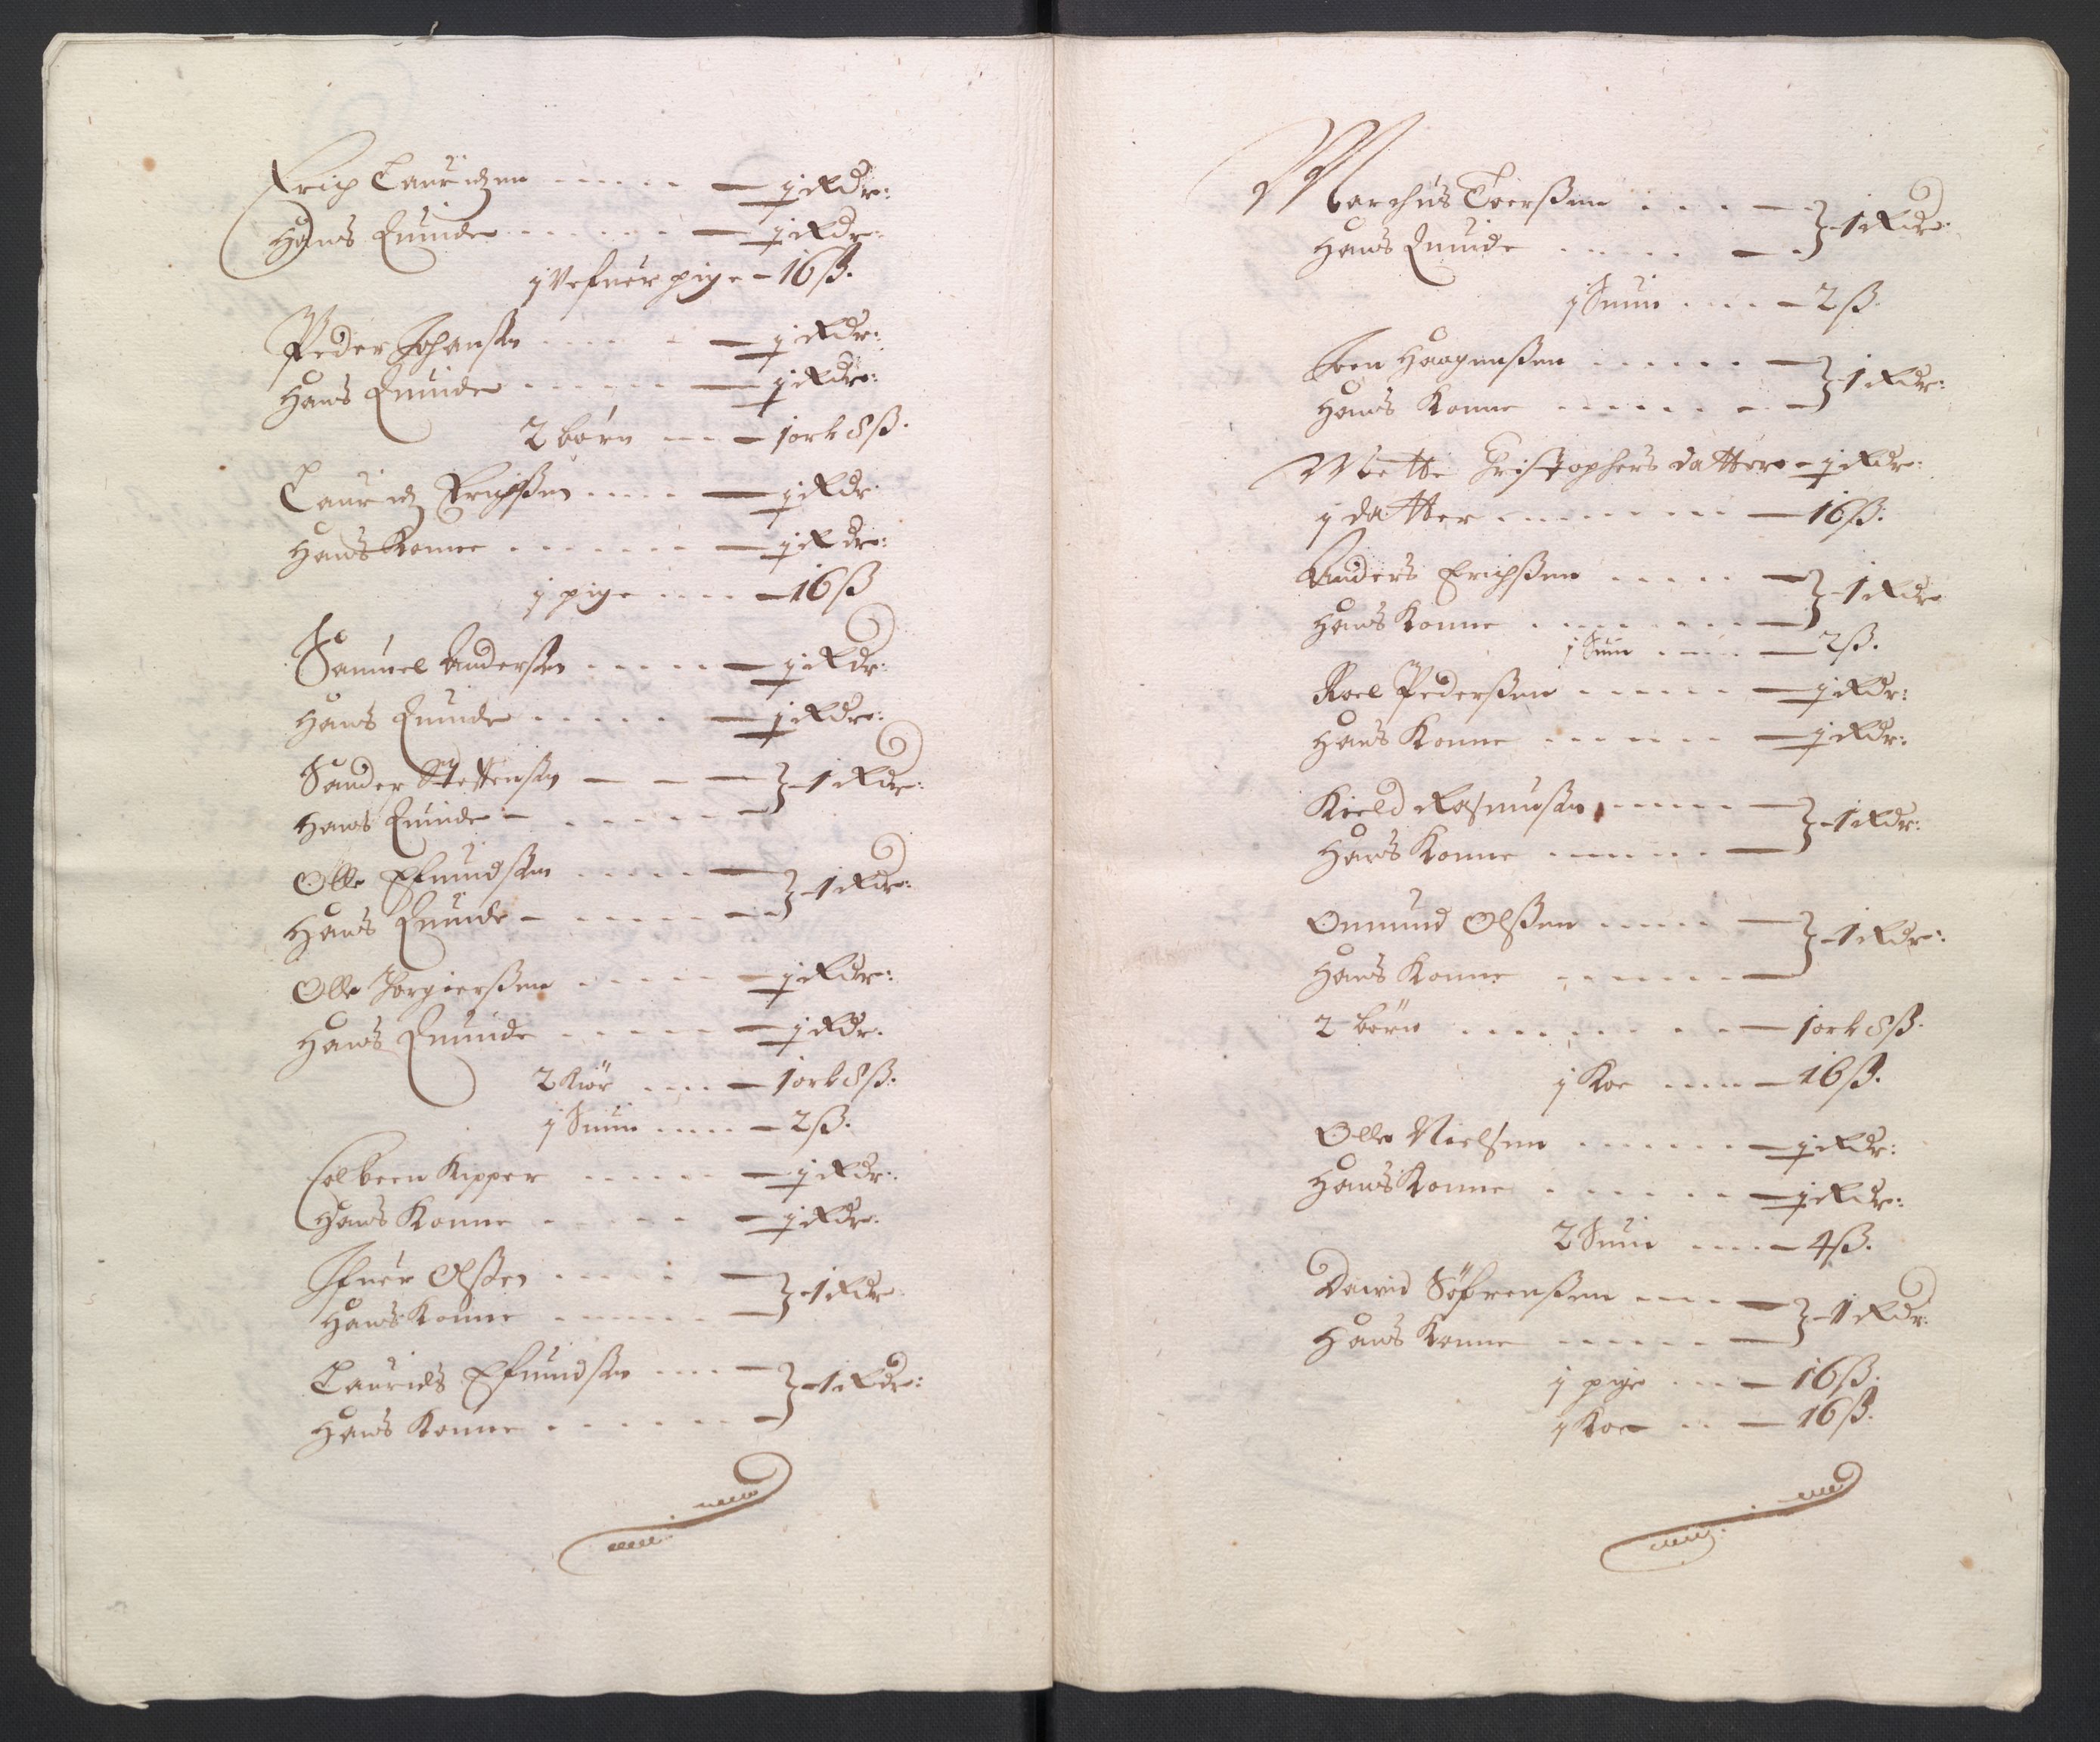 Erich Lauridzen - - - - - — j Rdr:
Hans Quinde - - - - - - — j Rdr:
j Vefuer pige - 16 ß.
Peder Johansen - - - - — j Rdr:
Hans Quinde - - - - - - — j Rdr:
2 börn - - — 1 ort 8 ß.
Lauridz Erichßen - - - - — j Rdr
Hans Konne - - - - - - — j Rdr:
j pige - - - - 16 ß
Samuel Andersen - - - - - — j Rdr:
Hans Quinde - - - - - — j Rdr:
Sander Steffensen — — — } - 1 Rdr:
Hans Quinde - - - - - -
Olle Efuindsen - - - - — } - 1 Rdr:
Hans Quinde - - - - - -
Olle Torgierßen - - - - — j Rdr:
Hans Quinde - - - - - — j Rdr.
2 Kiör - - - - — 1 ort 8 ß.
j Suin - - - - — 2 ß.
Colbeen Kipper - - - - - — j Rdr:
Hans Konne - - - - — j Rdr:
Ifuer Olßen - - - - — } - 1 Rdr
Hans Konne - - - - - - —
Laurids Efuindsen - - - — } - 1 Rdr:
Hans Konne - - - - - - —
Marchus Toerßen - - - - — } - 1 Rdr:
Hans Quinde - - - - — -
j Suin - - - — 2 ß.
Haagenßen - - - - - - — } - 1 Rdr:
Hans Konne - - - - - - —
Mette Christophers datter - j Rdr:
j datter - - - - - - - — 16 ß.
Anders Erichßen - - - - - — } - 1 Rdr
Hans Konne - - - - - - - —
j Suin - - - - — 2 ß.
Roel Pederßen - - - - - — j Rdr:
Hans Konne - - - - - - — j Rdr:
Kield Rasmusen - - - - - — } - 1 Rdr:
Hans Konne - - - - - - —
Onmund Olßen - - - - - — } - 1 Rdr:
Hans Konne - - - - - - —
2 börn - - - - - - - — 1 ort 8 ß.
j Koe - - - - — 16 ß.
Olle Nielsen - - - - - - — j Rdr:
Hans Konne - - - - - - — j Rdr:
2 Suin - - - - — 4 ß.
Dawid Söfrenßen - - - - — } - 1 Rdr:
Hans Konne - - - - - - —
j pige - - - — 16 ß.
j Koe - - — 16 ß.